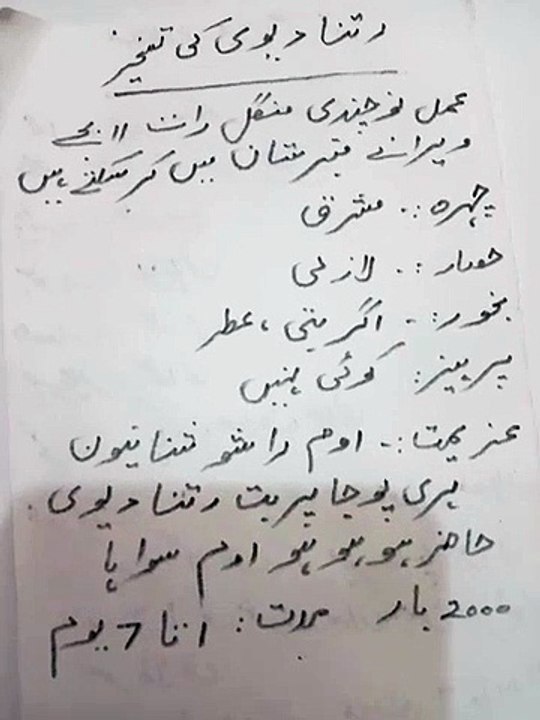 رتنا دیوی کی تسخیر
عمل نوچندی منگل رات 11 بجے
ویرانے قبرستان میں کر سکتے ہیں
چہرہ :. مشرق
حصار :. لازمی
بخور :. اگر بتی ، عطر
پرہیز : کوئی نہیں
عزیمت :. اوم
پری پوجا پربت رتنا دیوی
حاضر ہو ہو ہو اوم سواہا
2000 بار مدت : 1 تا 7 یوم